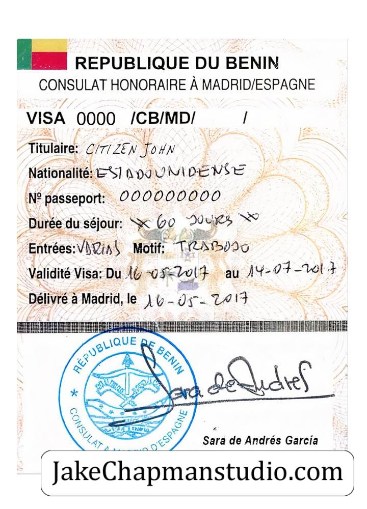 REPUBLIQUE DU BENIN
CONSULAT HONORAIRE À MADRID/ESPAGNE
VISA 0000 /CB/MD/ /
Titulaire: CITIZEN JOHN
Nationalité: ESTADOUNIDENSE
Nº passeport: 000000000
Durée du séjour: 60 JOURS
Entrées: VARIAS Motif: TRABAJO
Validité Visa: Du 16-05-2017 au 14-07-2017
Délivré à Madrid, le 16-05-2017
REPUBLIQUE DE BENIN
CONSULAT A MADRID D'ESPAGNE
Sara de Andres
Sara de Andrés García
JakeChapmanstudio.com